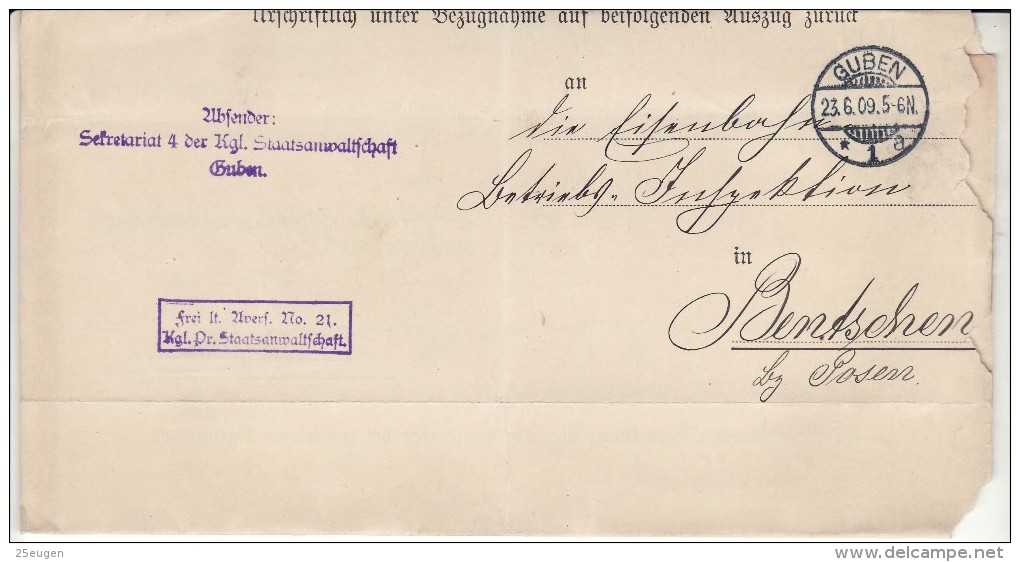 Urschriftlich unter Bezugnahme auf beifolgenden Auszug zurück
an
GUBEN
23.6.09.5-6N.
* 1 a
Absender:
Sekretariat 4 der Kgl. Staatsanwaltschaft
Guben.
die Eisenbahn
Betriebs-Inspektion
in
Bentschen
bz Posen.
Frei lt. Avers. No. 21.
Kgl. Pr. Staatsanwaltschaft.
25eugen
www.delcampe.net